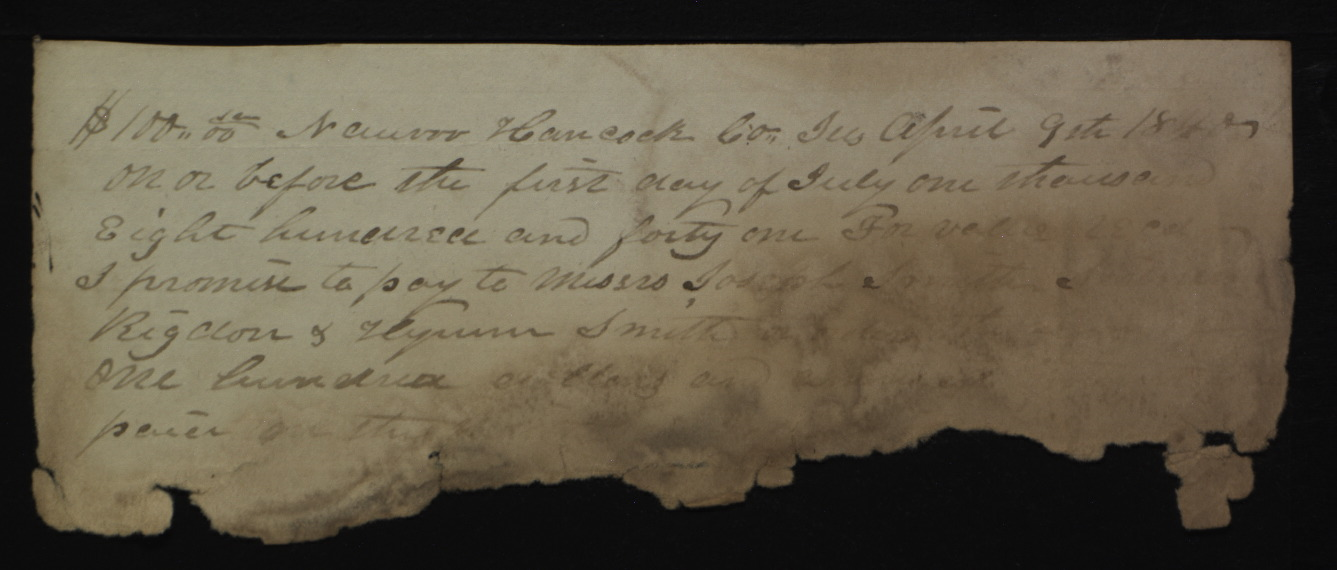 $100.. 00 Nauvoo Hancock Co. Ills April 9th 1840
on or before the first day of July one thousand
Eight hundred and forty one For value recd
I promise to pay to Messrs Joseph Smith
Rigdon & Hyrum Smith
One hundred dollars and
on the